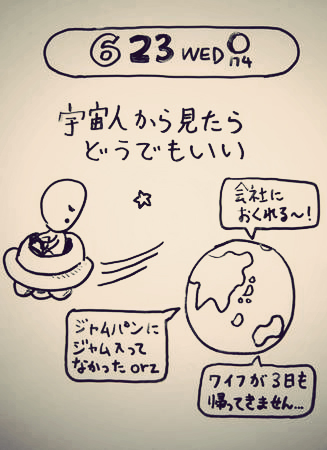 6 23 WED 174
宇宙人から見たら
どうでもいい
会社に
おくれる〜!
ジャムパンに
ジャム入って
なかったorz
ワイフが3日も
帰ってきません...